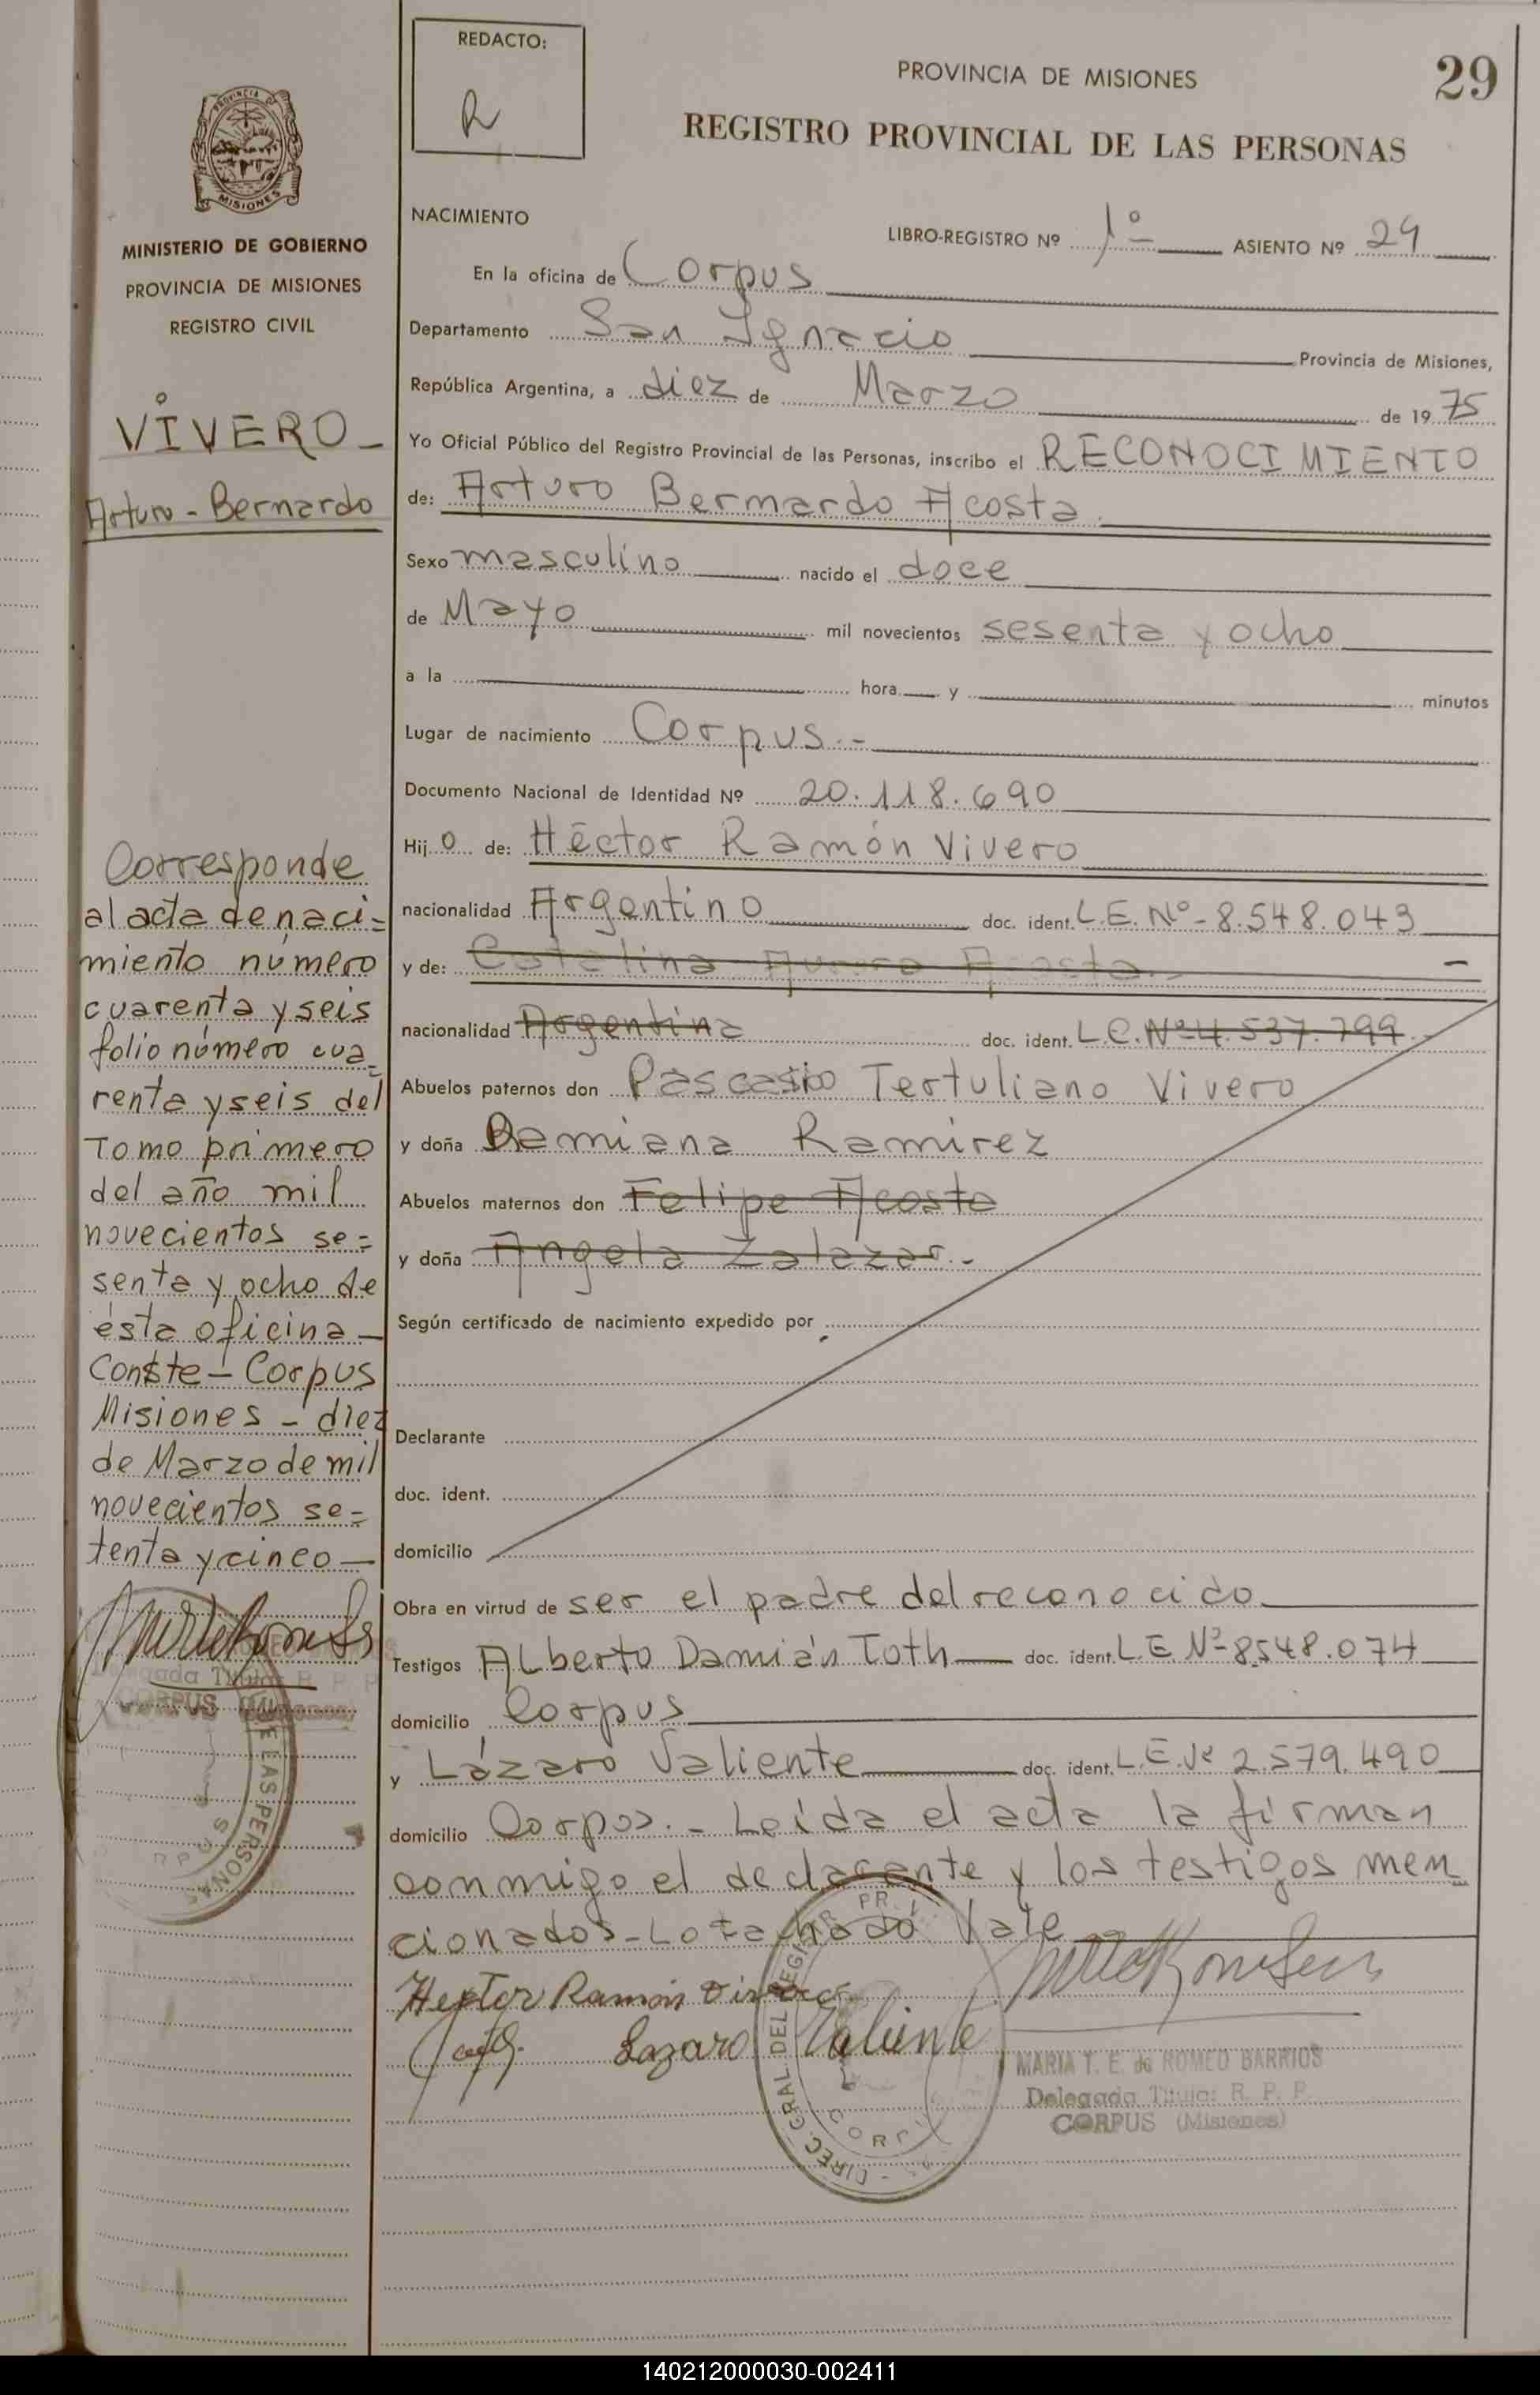 REDACTO:
R
PROVINCIA DE MISIONES
29
REGISTRO PROVINCIAL DE LAS PERSONAS
PROVINCIA DE
MISIONES
MINISTERIO DE GOBIERNO
PROVINCIA DE MISIONES
REGISTRO CIVIL
VIVERO_
Arturo - Bernardo
Corresponde
al acta de naci=
miento número
cuarenta y seis
folio número cua=
renta y seis del
Tomo primero
del año mil
novecientos se=
senta y ocho de
ésta oficina_
Conste - Corpus
Misiones - diez
de Marzo de mil
novecientos se=
tenta y cinco_
CORPUS (Misiones)
DE LAS PERSONAS
NACIMIENTO
LIBRO-REGISTRO Nº 1º ASIENTO Nº 29
En la oficina de Corpus
Departamento San Ignacio Provincia de Misiones,
República Argentina, a diez de Marzo de 1975
Yo Oficial Público del Registro Provincial de las Personas, inscribo el RECONOCIMIENTO
de: Arturo Bernardo Acosta
Sexo masculino nacido el doce
de Mayo mil novecientos sesenta y ocho
a la hora y minutos
Lugar de nacimiento Corpus.-
Documento Nacional de Identidad Nº 20.118.690
Hijo de: Héctor Ramón Vivero
nacionalidad Argentino doc. ident. L.E. Nº- 8.548.043
y de: Catalina Aurora Acosta.-
nacionalidad Argentina doc. ident. L.C. Nº 4.537.799
Abuelos paternos don Pascasio Tertuliano Vivero
y doña Damiana Ramírez
Abuelos maternos don Felipe Acosta
y doña Angela Zalazar.-
Según certificado de nacimiento expedido por
Declarante
doc. ident.
domicilio
Obra en virtud de ser el padre del reconocido
Testigos Alberto Damián Toth doc. ident. L.E. Nº- 8.548.074
domicilio Corpus
y Lázaro Valiente doc. ident. L.E. Nº 2.579.490
domicilio Corpus.- Leída el acta la firman
conmigo el declarante y los testigos men
cionados - Lo tachado Vale
Hector Ramón Vivero
Lazaro Valiente
DIREC. GRAL DEL REGISTR PR
MARIA T. E. de ROMEO BARRIOS
Delegada Titular R. P. P.
CORPUS (Misiones)
140212000030-002411